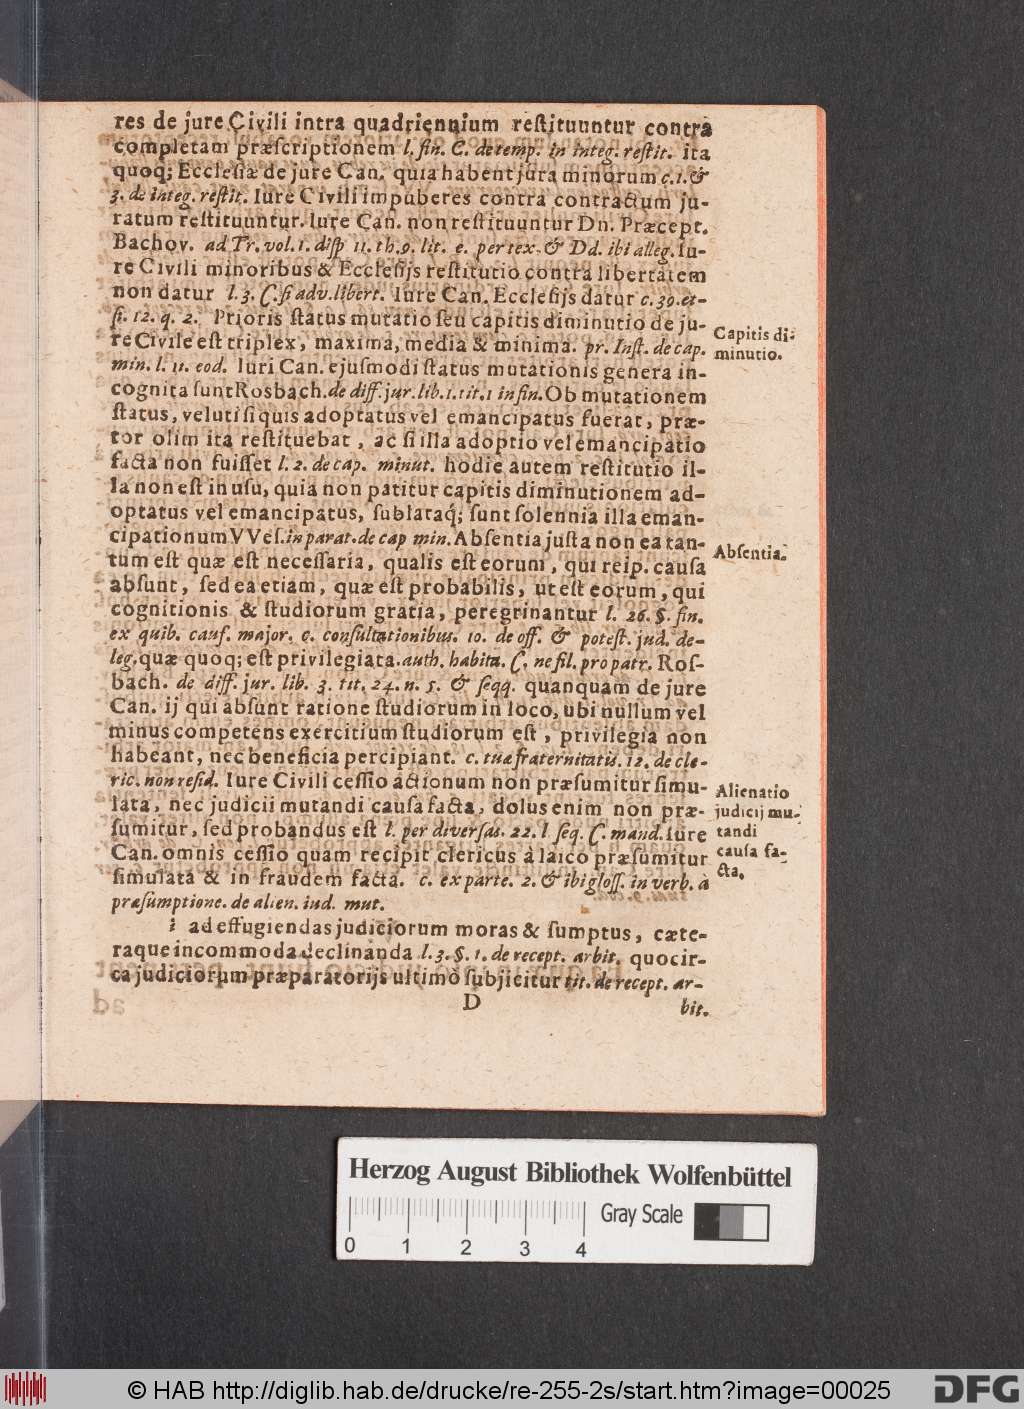 res de jure Civili intra quadriennium reſtituuntur contra
completam præſcriptionem l. fin. C. de temp. in integ. reſtit. ita
quoq; Eccleſiæ de jure Can. quia habent jura minorum c. 1. &
3. de integ. reſtit. Iure Civili impuberes contra contractum ju-
ratum reſtituuntur. Iure Can. non reſtituuntur Dn. Præcept.
Bachov. ad Tr. vol. 1. diſp 11. th. 9. lit. e. per tex. & Dd. ibi alleg. Iu-
re Civili minoribus & Eccleſijs reſtitutio contra libertatem
non datur l. 3. C. ſi adv. libert. Iure Can. Eccleſijs datur c. 39. et-
ſi. 12. q. 2. Prioris ſtatus mutatio ſeu capitis diminutio de ju-
re Civile eſt triplex, maxima, media & minima. pr. Inſt. de cap.
Capitis di-
minutio.
min. l. 11. eod. Iuri Can. ejuſmodi ſtatus mutationis genera in-
cognita ſunt Rosbach. de diff. jur. lib. 1. tit. 1 in fin. Ob mutationem
ſtatus, veluti ſi quis adoptatus vel emancipatus fuerat, præ-
tor olim ita reſtituebat, ac ſi illa adoptio vel emancipatio
facta non fuiſſet l. 2. de cap. minut. hodie autem reſtitutio il-
la non eſt in uſu, quia non patitur capitis diminutionem ad-
optatus vel emancipatus, ſublataq́; ſunt ſolennia illa eman-
cipationum VVeſ. in parat. de cap min. Abſentia juſta non ea tan-
Abſentia.
tum eſt quæ eſt neceſſaria, qualis eſt eorum, qui reip. cauſa
abſunt, ſed ea etiam, quæ eſt probabilis, ut eſt eorum, qui
cognitionis & ſtudiorum gratia, peregrinantur l. 26. §. fin.
ex quib. cauſ. major. c. conſultationibus. 10. de off. & poteſt. jud. de-
leg. quæ quoq; eſt privilegiata. auth. habita. C. ne fil. pro patr. Roſ-
bach. de diff. jur. lib. 3. tit. 24. n. 5. & ſeqq. quanquam de jure
Can. ij qui abſunt ratione ſtudiorum in loco, ubi nullum vel
minus competens exercitium ſtudiorum eſt, privilegia non
habeant, nec beneficia percipiant. c. tuæ fraternitatis. 12. de cle-
ric. non reſid. Iure Civili ceſſio actionum non præſumitur ſimu-
lata, nec judicii mutandi cauſa facta, dolus enim non præ-
ſumitur, ſed probandus eſt l. per diverſas. 22. l ſeq. C. mand. Iure
Can. omnis ceſſio quam recipit clericus à laico præſumitur
ſimulata & in fraudem facta. c. ex parte. 2. & ibi gloſſ. in verb. à
præſumptione. de alien. iud. mut.
Alienatio
judicij mu-
tandi
cauſa fa-
cta.
ad effugiendas judiciorum moras & ſumptus, cæte-
raque incommoda declinanda l. 3. §. 1. de recept. arbit. quocir-
ca judiciorum præparatorijs ultimò ſubjicitur tit. de recept. ar-
D
bit.
Herzog August Bibliothek Wolfenbüttel
Gray Scale
0 1 2 3 4
© HAB http://diglib.hab.de/drucke/re-255-2s/start.htm?image=00025
DFG